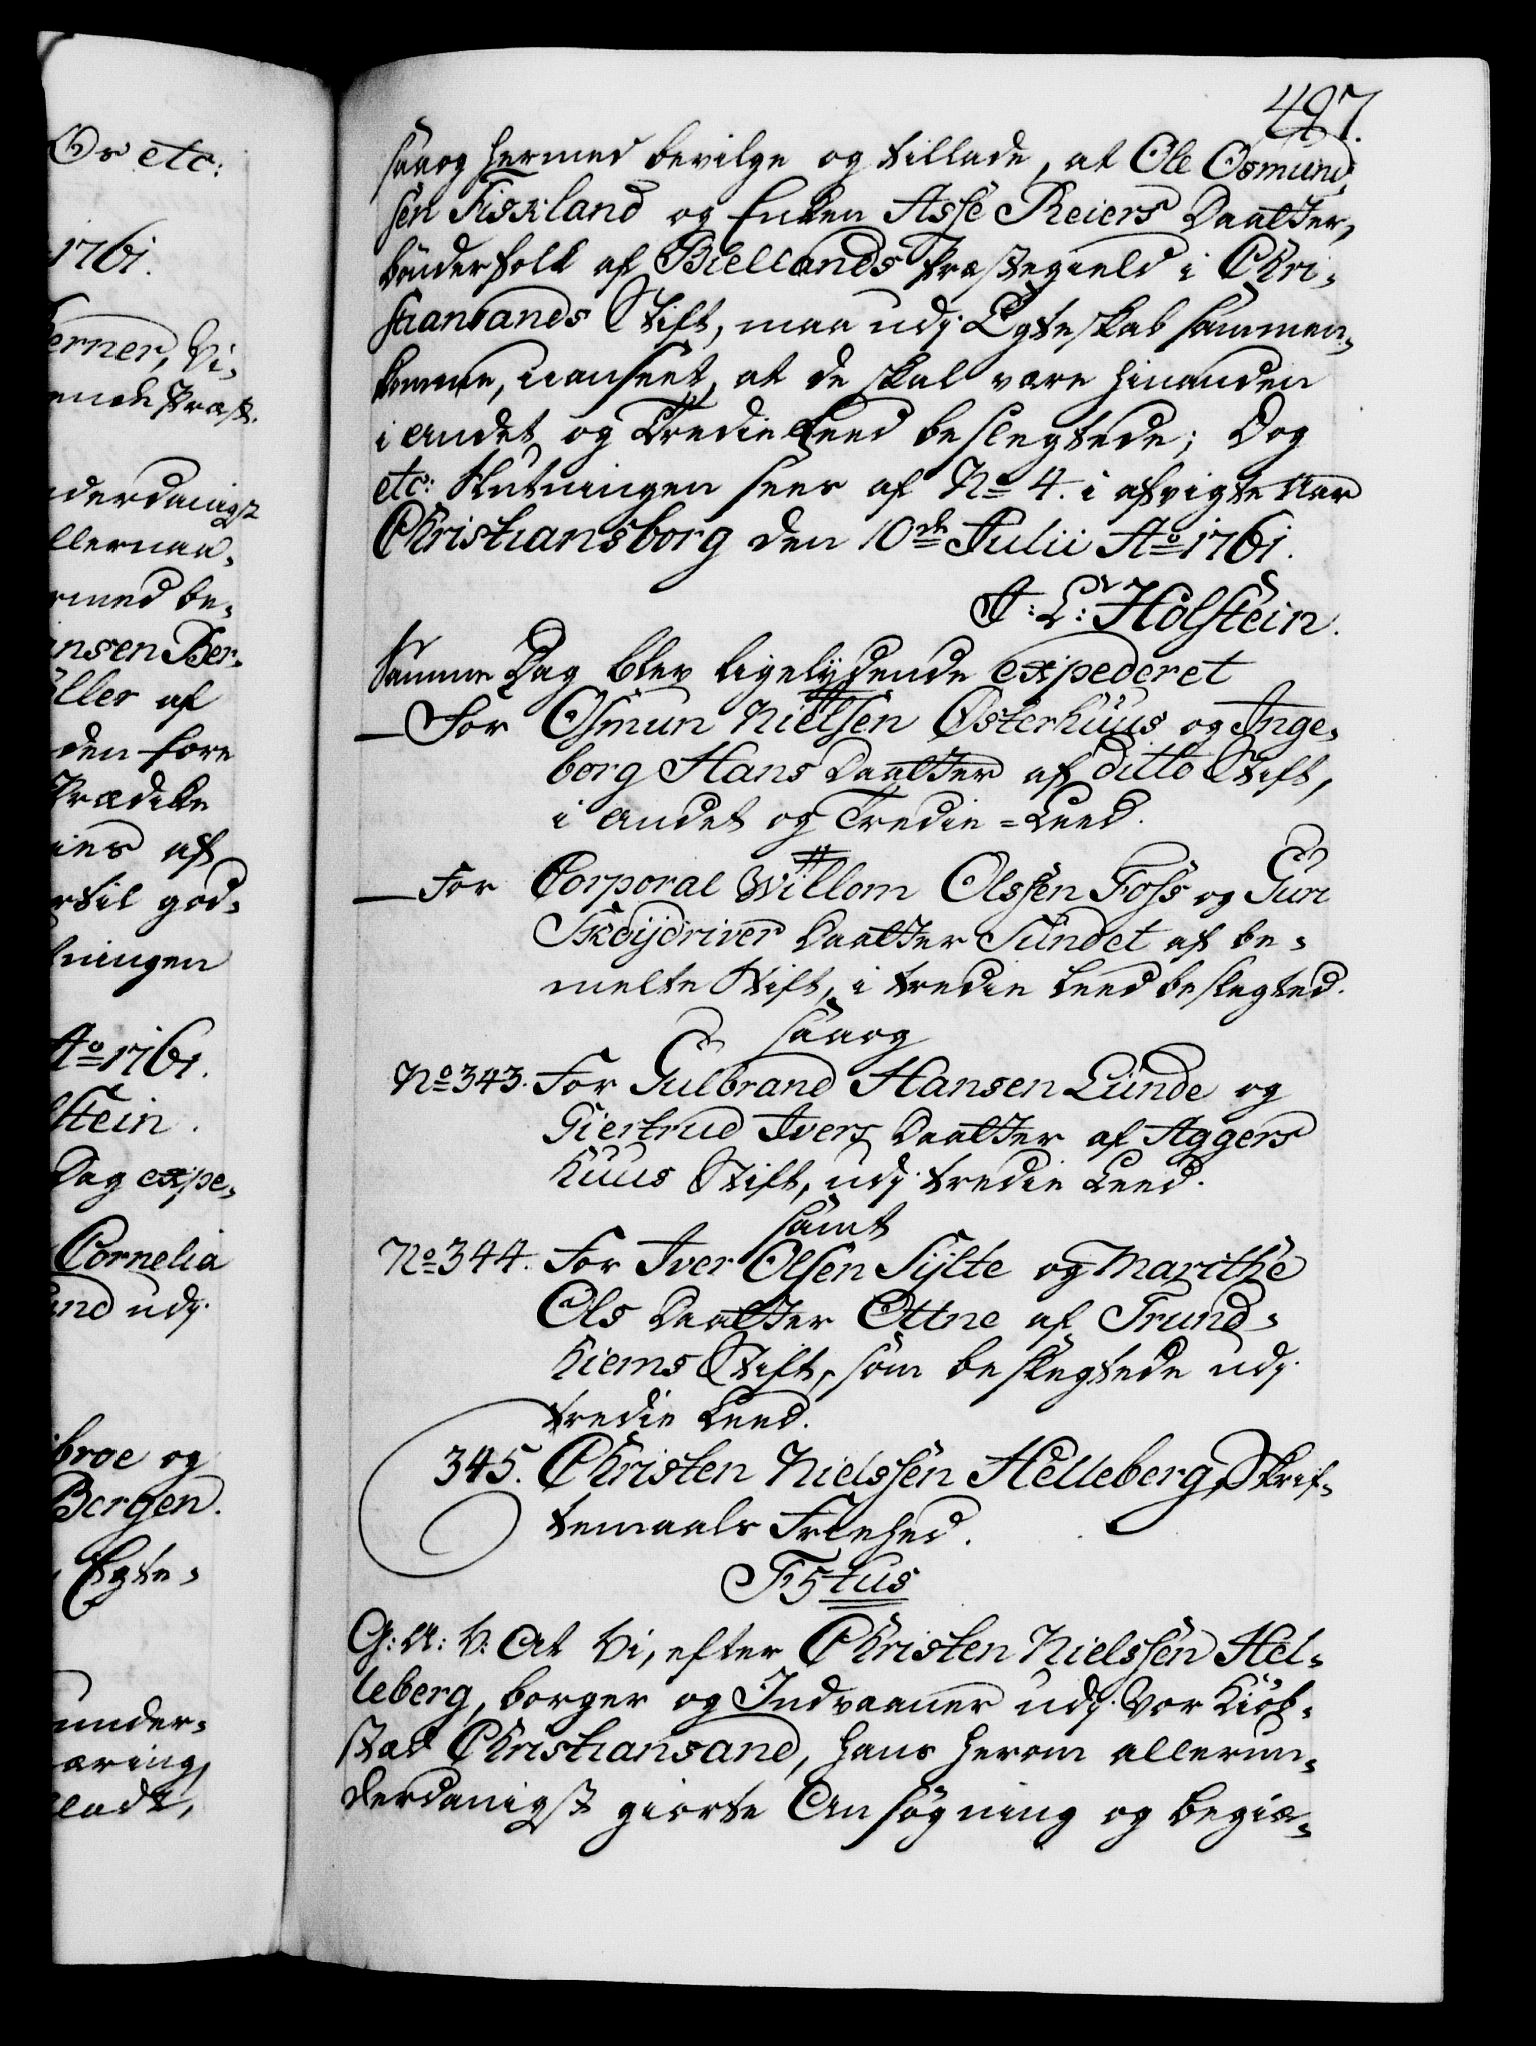 Or etc:
1761.
erner, Vi-
ende Præst.
derdanigst
llernaa-
rmed be-
ansen Ber-
üller af
den fore
Prædike
ier af
rtil god-
ningen
Ao 1761.
lstein.
Dag expe-
Cornelia
and udj
broe og
Bergen.
Egte-
under-
æring,
lade,
497.
saaog hermed bevilge og tillade, at Ole Osmund-
sen Fiskland og Enken Asse Reiers Daatter,
bönderfolk af Biellands Præstegield i Chri-
stiansands Stift, maa udj Egteskab sammen-
komme, uanseet, at de skal være hinanden
i andet og Tredie Leed beslegtede; Dog
etc: Slutningen sees af No 4. i afvigte Aar
Christiansborg den 10de Julii Ao 1761.
J: L: Holstein.
Samme Dag blev ligelydende expederet
— For Osmun Nielsen Østerhuus og Inge-
borg Hans Daatter af ditto Stift,
i andet og Tredie = Leed.
— For Corporal Willom Olssen Foss og Guri
Skoijdriver Daatter Sundet af be-
melte Stift, i tredie Leed beslegted.
saaog
No 343. For Gulbrand Hansen Lunde og
Giertrud Ivers Daatter af Aggers
huus Stift, udj tredie Leed.
samt
No 344. For Iver Olsen Sylte og Marithe
Ols Daatter Ottne af Trund-
hiems Stift, som beslegtede udj
tredie Leed.
345. Christen Nielssen Helleberg, Skrif-
temaals Friehed.
Fistus
G: A: V: At Vi, efter Christen Nielssen Hel-
leberg, borger og Indvaaner udj Vor Kiöb-
stad Christiansand, hans herom allerun-
derdanigst giorte Ansøgning og begiæ-